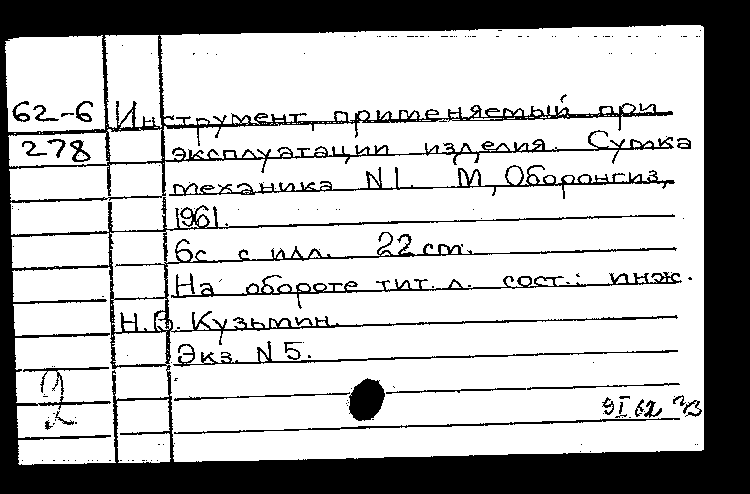 62-6 Инструмент, применяемый при
278 эксплуатации изделия. Сумка
механика N1. М, Оборонгиз,
1961.
6с с илл. 22 cm.
На обороте тит. л. сост.: инж.
Н.В. Кузьмин.
Экз. N5.
2
9 I 62